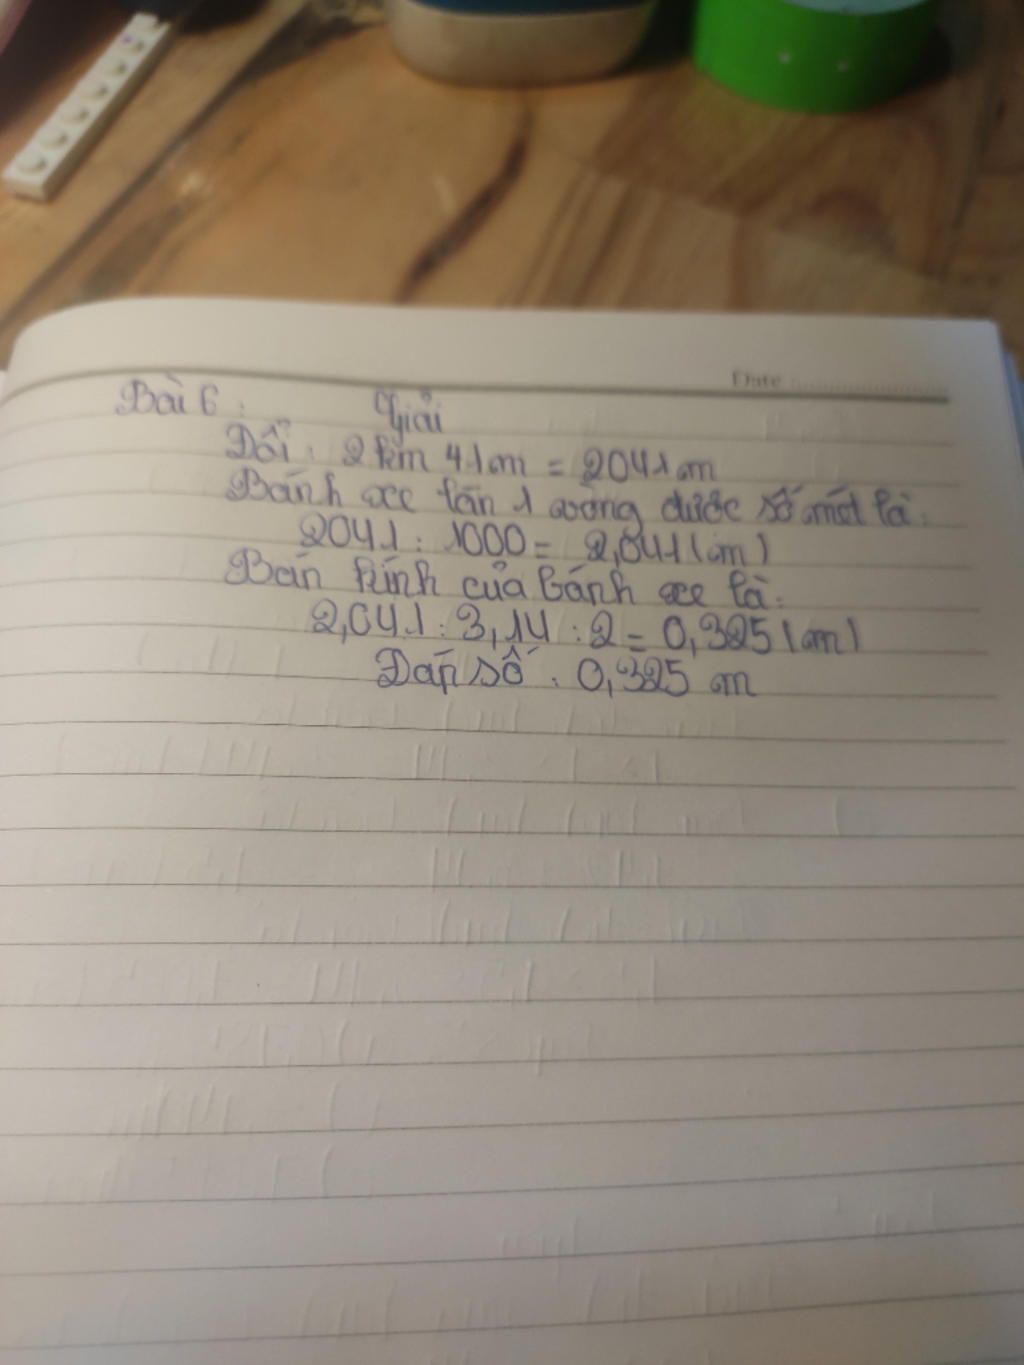 Date
Bài 6: Giải
Đổi: 2 km 41m = 2041m
Bánh xe lăn 1 vòng được số mét là:
2041 : 1000 = 2,041 (m)
Bán kính của bánh xe là:
2,041 : 3,14 : 2 = 0,325 (m)
Đáp số: 0,325 m